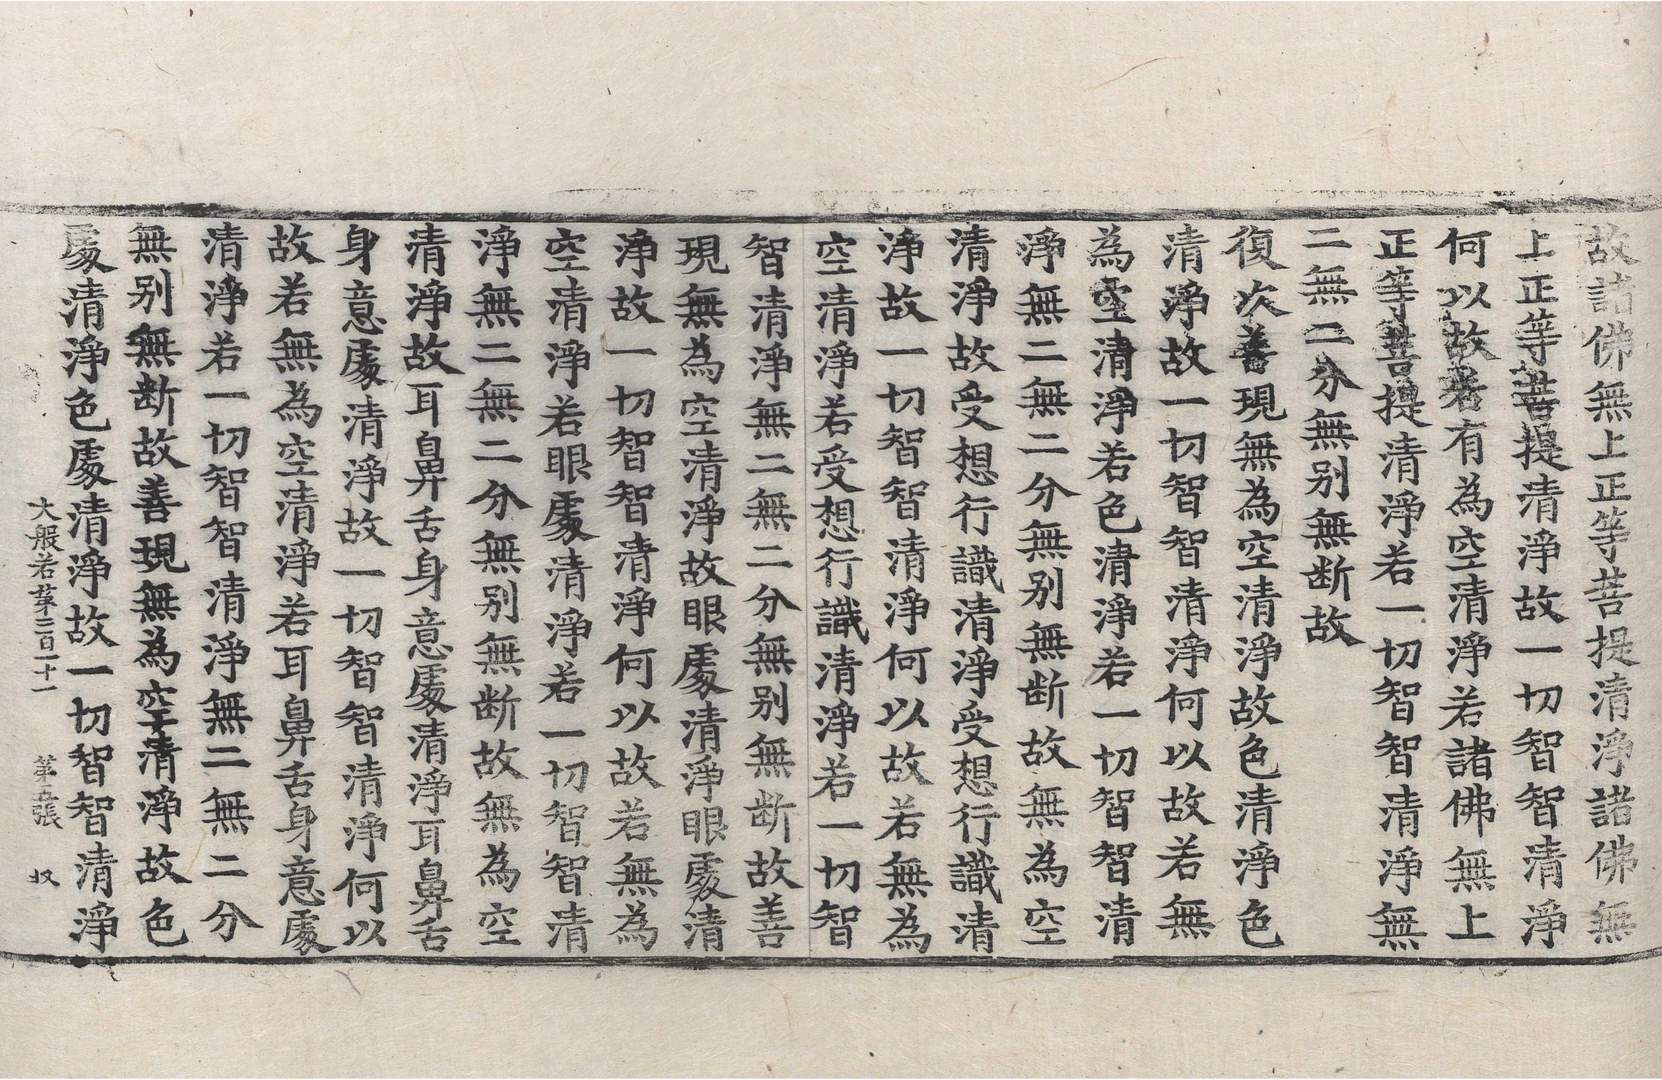 故諸佛無上正等菩提清淨諸佛無
上正等菩提清淨故一切智智清淨
何以故若有為空清淨若諸佛無上
正等菩提清淨若一切智智清淨無
二無二分無別無斷故
復次善現無為空清淨故色清淨色
清淨故一切智智清淨何以故若無
為空清淨若色清淨若一切智智清
淨無二無二分無別無斷故無為空
清淨故受想行識清淨受想行識清
淨故一切智智清淨何以故若無為
空清淨若受想行識清淨若一切智
智清淨無二無二分無別無斷故善
現無為空清淨故眼處清淨眼處清
淨故一切智智清淨何以故若無為
空清淨若眼處清淨若一切智智清
淨無二無二分無別無斷故無為空
清淨故耳鼻舌身意處清淨耳鼻舌
身意處清淨故一切智智清淨何以
故若無為空清淨若耳鼻舌身意處
清淨若一切智智清淨無二無二分
無別無斷故善現無為空清淨故色
處清淨色處清淨故一切智智清淨
大般若第二百一十一 第五張